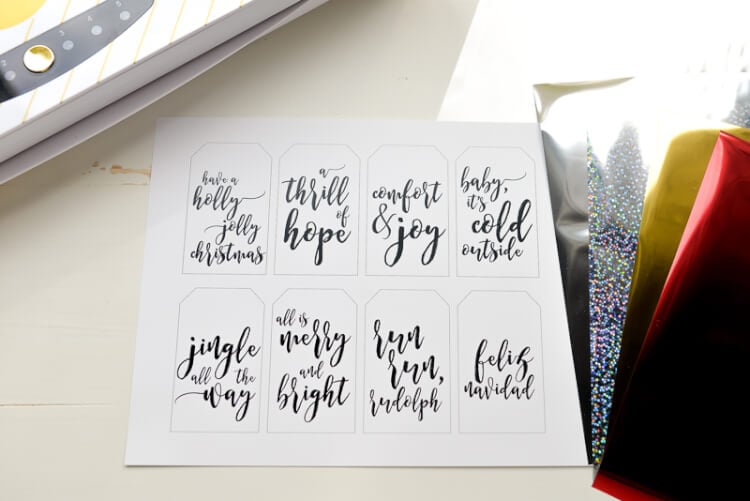 have a
holly
jolly
christmas
a
thrill
of
hope
comfort
& joy
baby,
it's
cold
outside
jingle
all the
way
all is
merry
and
bright
run
run,
rudolph
feliz
navidad